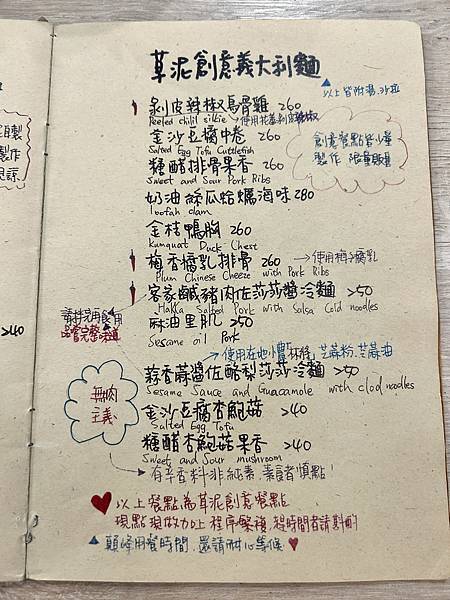 草泥創意義大利麵
▲以上皆附湯.沙拉
剝皮辣椒烏骨雞 260
Peeled chilil silkie
→使用花蓮剝皮辣椒
金沙豆腐中卷 260
Salted Egg Tofu Cuttlefish
創意餐點皆少量
製作 限量販售
糖醋排骨果香 260
Sweet and Sour Pork Ribs
奶油絲瓜蛤蠣海味 280
loofah clam
金桔鴨胸 260
Kumquat Duck Chest
梅香腐乳排骨 260 →使用梅子腐乳
Plum Chinese Cheeze with Pork Ribs
客家鹹豬肉佐莎莎醬冷麵 250
Hakka Salted Pork with Salsa Cold noodles
品嘗完整味道
麻油里肌 250
Sesame oil Pork
蒜香蔴醬佐酪梨莎莎冷麵 250
Sesame Sauce and Guacamole with clod noodles
無肉
主義
金沙豆腐杏鮑菇 240
Salted Egg Tofu
糖醋杏鮑菇果香 240
Sweet and Sour mushroom
→有辛香料非純素.素食者慎點!
以上餐點為草泥創意餐點
現點現做加上程序繁複,趕時間者請斟酌
▲顛峰用餐時間.還請耐心等候
240